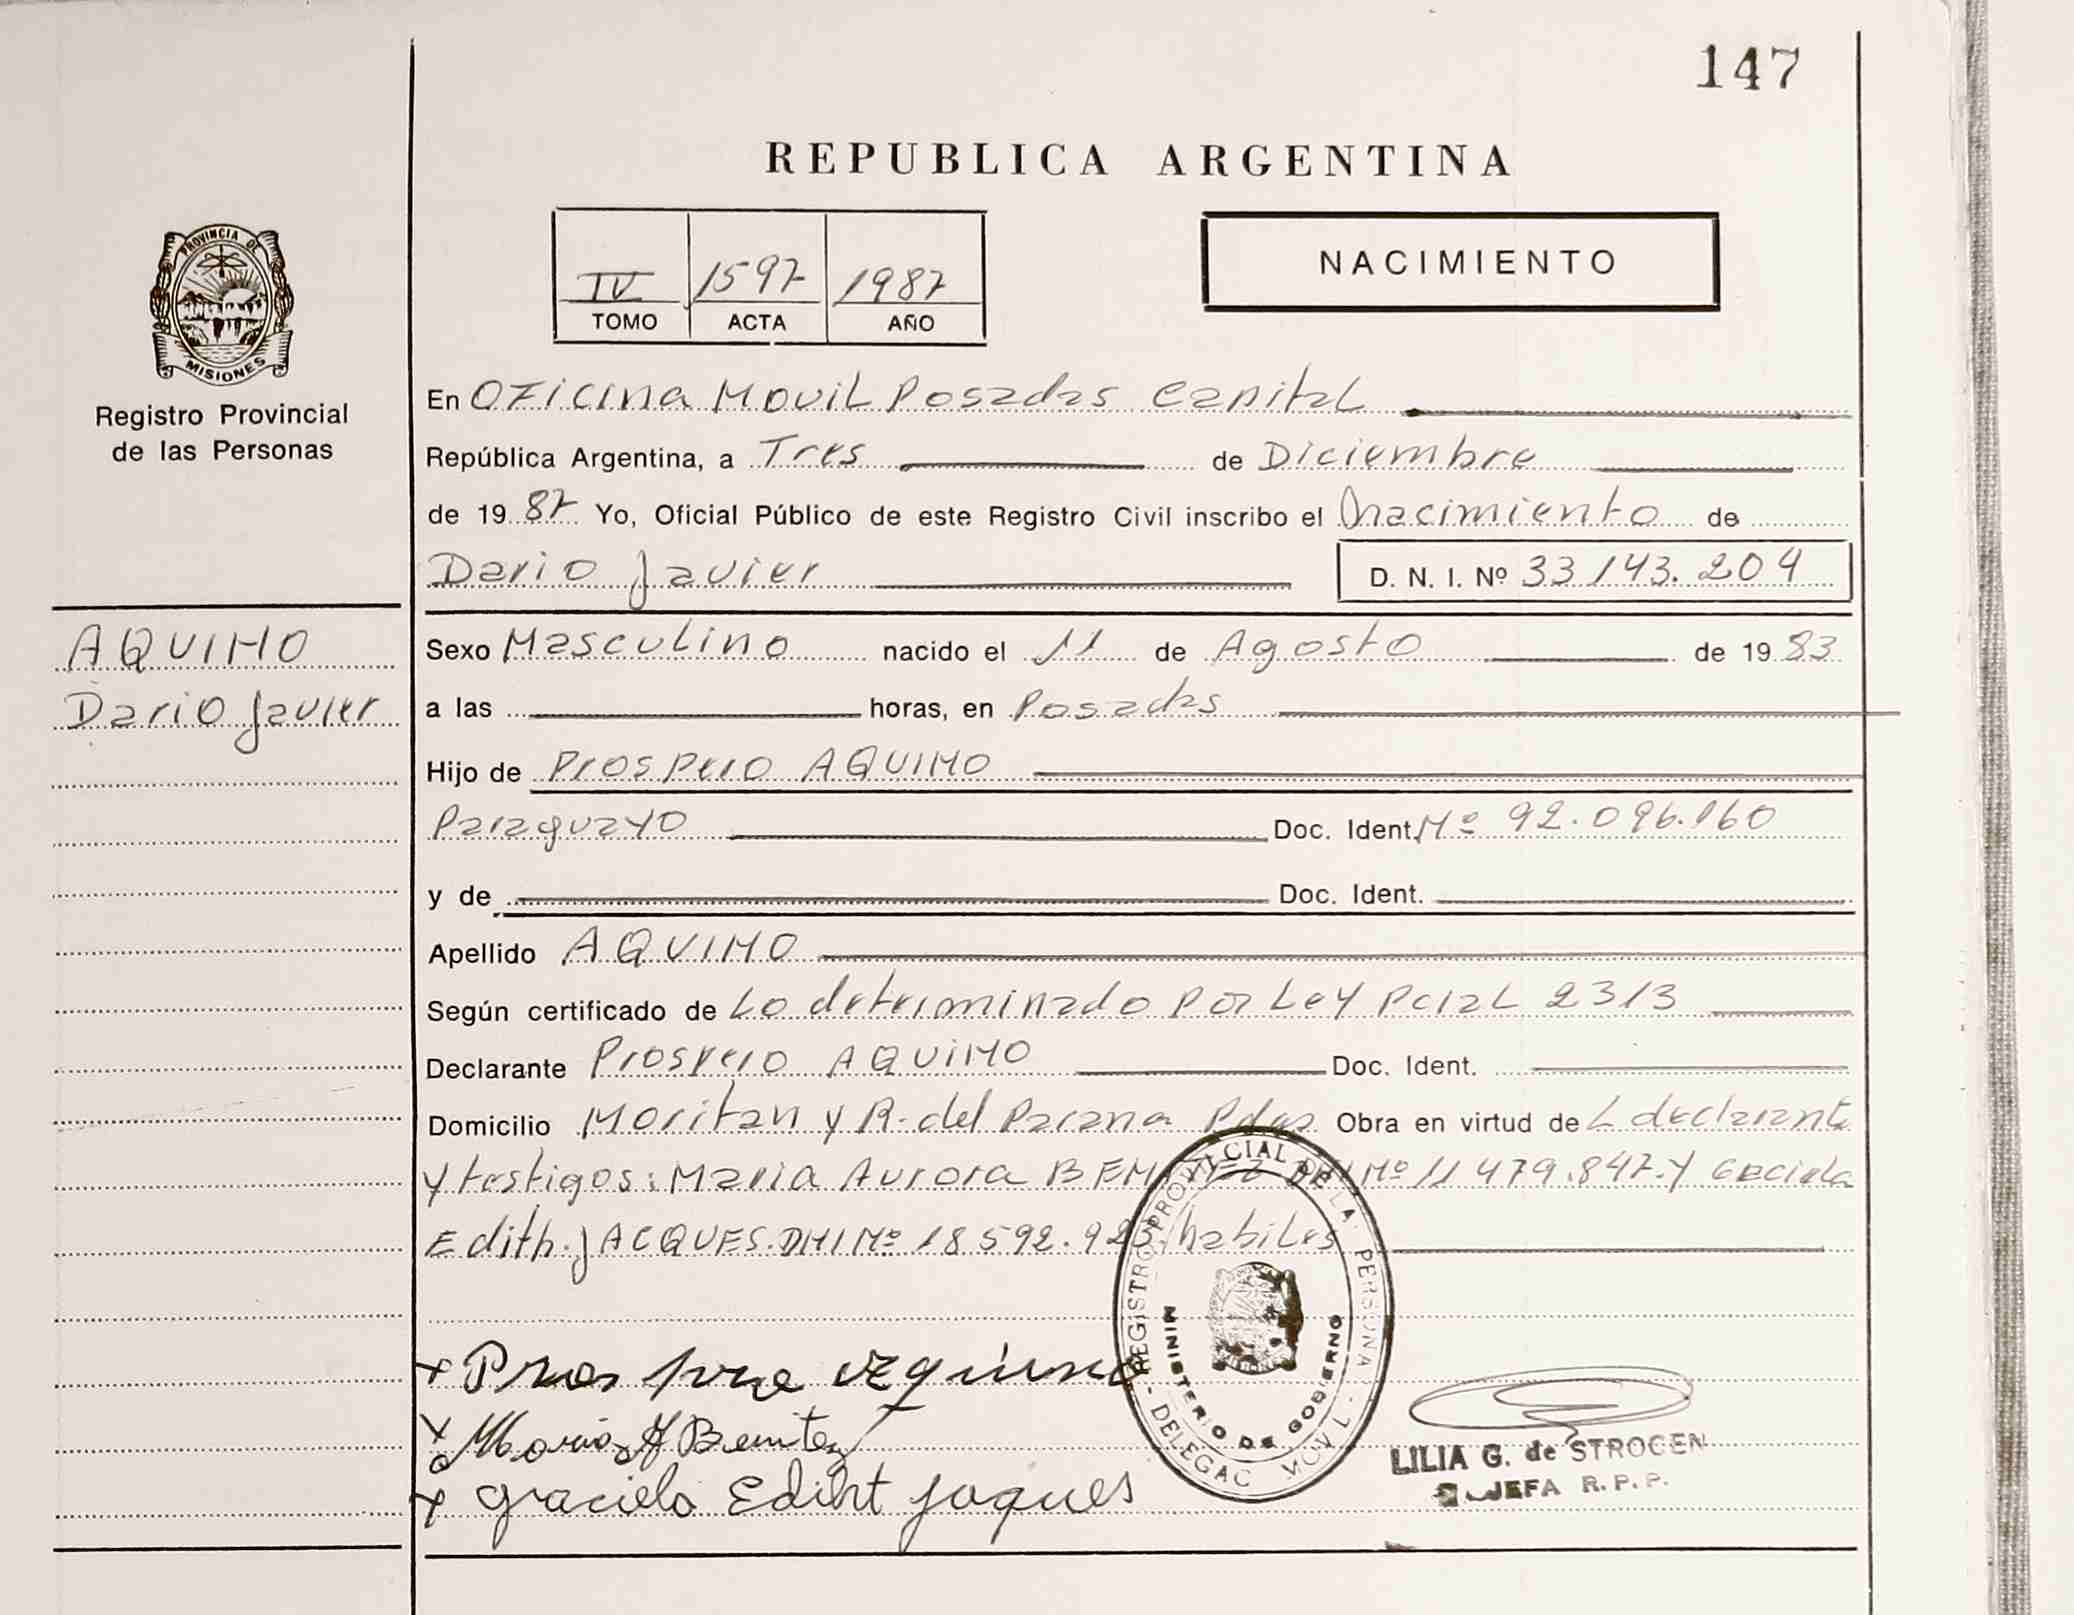 147
REPUBLICA ARGENTINA
PROVINCIA DE
MISIONES
Registro Provincial
de las Personas
IV 1597 1987
TOMO ACTA AÑO
NACIMIENTO
En OFicina Movil Posadas Capital
República Argentina, a Tres de Diciembre
de 1987 Yo, Oficial Público de este Registro Civil inscribo el nacimiento de
Dario Javier D. N. I. Nº 33143.204
AQUINO
Dario Javier
Sexo Masculino nacido el 11 de Agosto de 1983
a las horas, en Posadas
Hijo de Prospero AQUINO
Paraguayo Doc. Ident. Nº 92.096.160
y de Doc. Ident.
Apellido AQUINO
Según certificado de Lo determinado por Ley Pcial 2313
Declarante Prospero AQUINO Doc. Ident.
Domicilio Moritan y R. del Parana Pdas Obra en virtud de L declarante
y testigos: Maria Aurora BENITEZ DNI Nº 11 479.847. Y Graciela
Edith. JACQUES. DNI Nº 18592.923. habiles
REGISTRO PROVINCIAL DE LA PERSONA
DELEGAC MOVIL
MINISTERIO DE GOBIERNO
x Prospero aquino
x Maria A Benitez
x Graciela Ediht Jaques
LILIA G. de STROCEN
JEFA R. P. P.